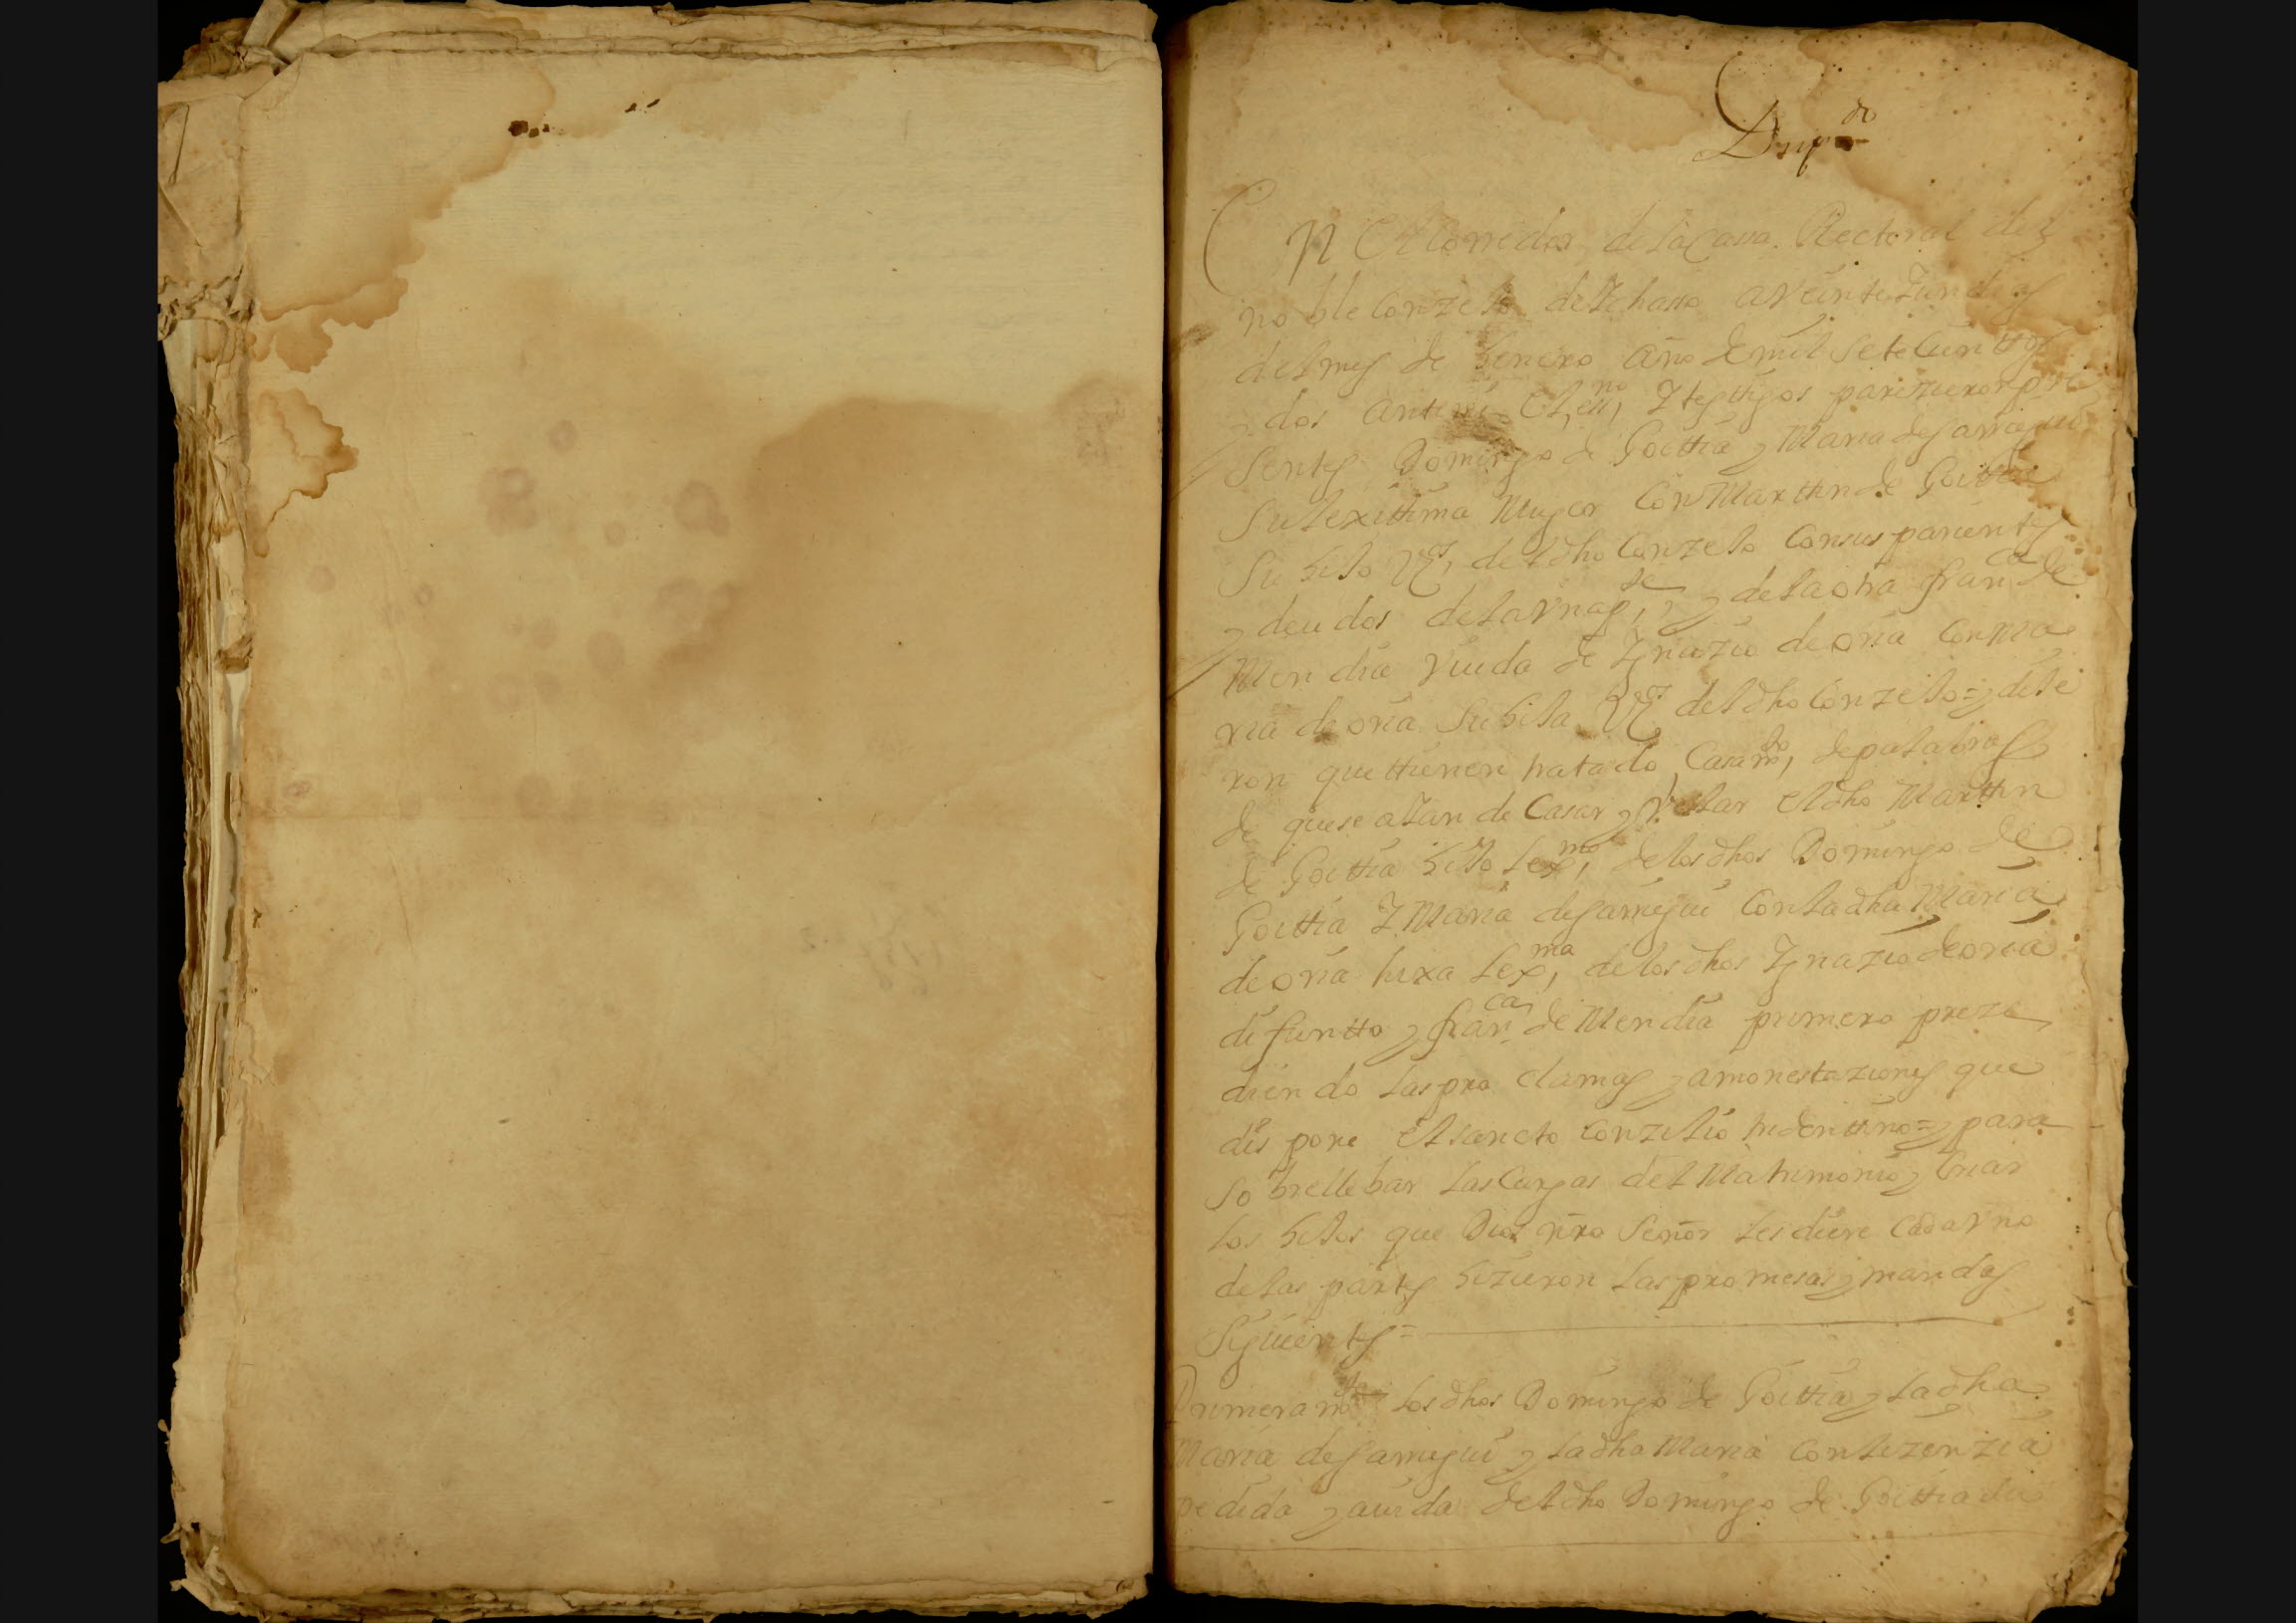 Dup.do
En El Corredor, de la Cassa Rectoral del
noble Conzeto de Ichasso a veinte Y un dias
del mes de henero año de mil setecienttos
y dos antemi El, essno, Y testtigos parezieron pre
sentes Domingo de Goittia y Maria de Sarriegui
Su lexittima Muger Con Marttin de Goittia
Su hiTo Vzs, del dho Conzeto Con sus parientes
y deudos de la vna pte, y de la otra Franca de
Mendia Viuda de Ygnazio de oria Con Ma
ria de oria Su hiTa Vzs del dho Conzeto = y diTe
ron que ttienen tratado, Casamto, de palabras
de que se aTan de Casar y Velar El dho Marttin
de Goittia hiTo Lexmo, de los dhos Domingo de
Goittia Y Maria de Sarriegui Con la dha Maria
de oria hixa Lexma, de los dhos Ygnazio de oria
difuntto y Franca de Mendia primero preze
diendo las proclamas y amonestaziones que
dispone El sancto Conzilio tridenttino = y para
sobrellebar las Cargas del Matrimonio y Criar
los hiTos que Dios nro Señor les diere Cada vno
de las partes hizieron las promesas y mandas
Siguientes =
Primeramte los dhos Domingo de Goittia y la dha
Maria de Sarriegui y la dha Maria Con lizenzia
pedida y auida del dho Domingo de Goittia su